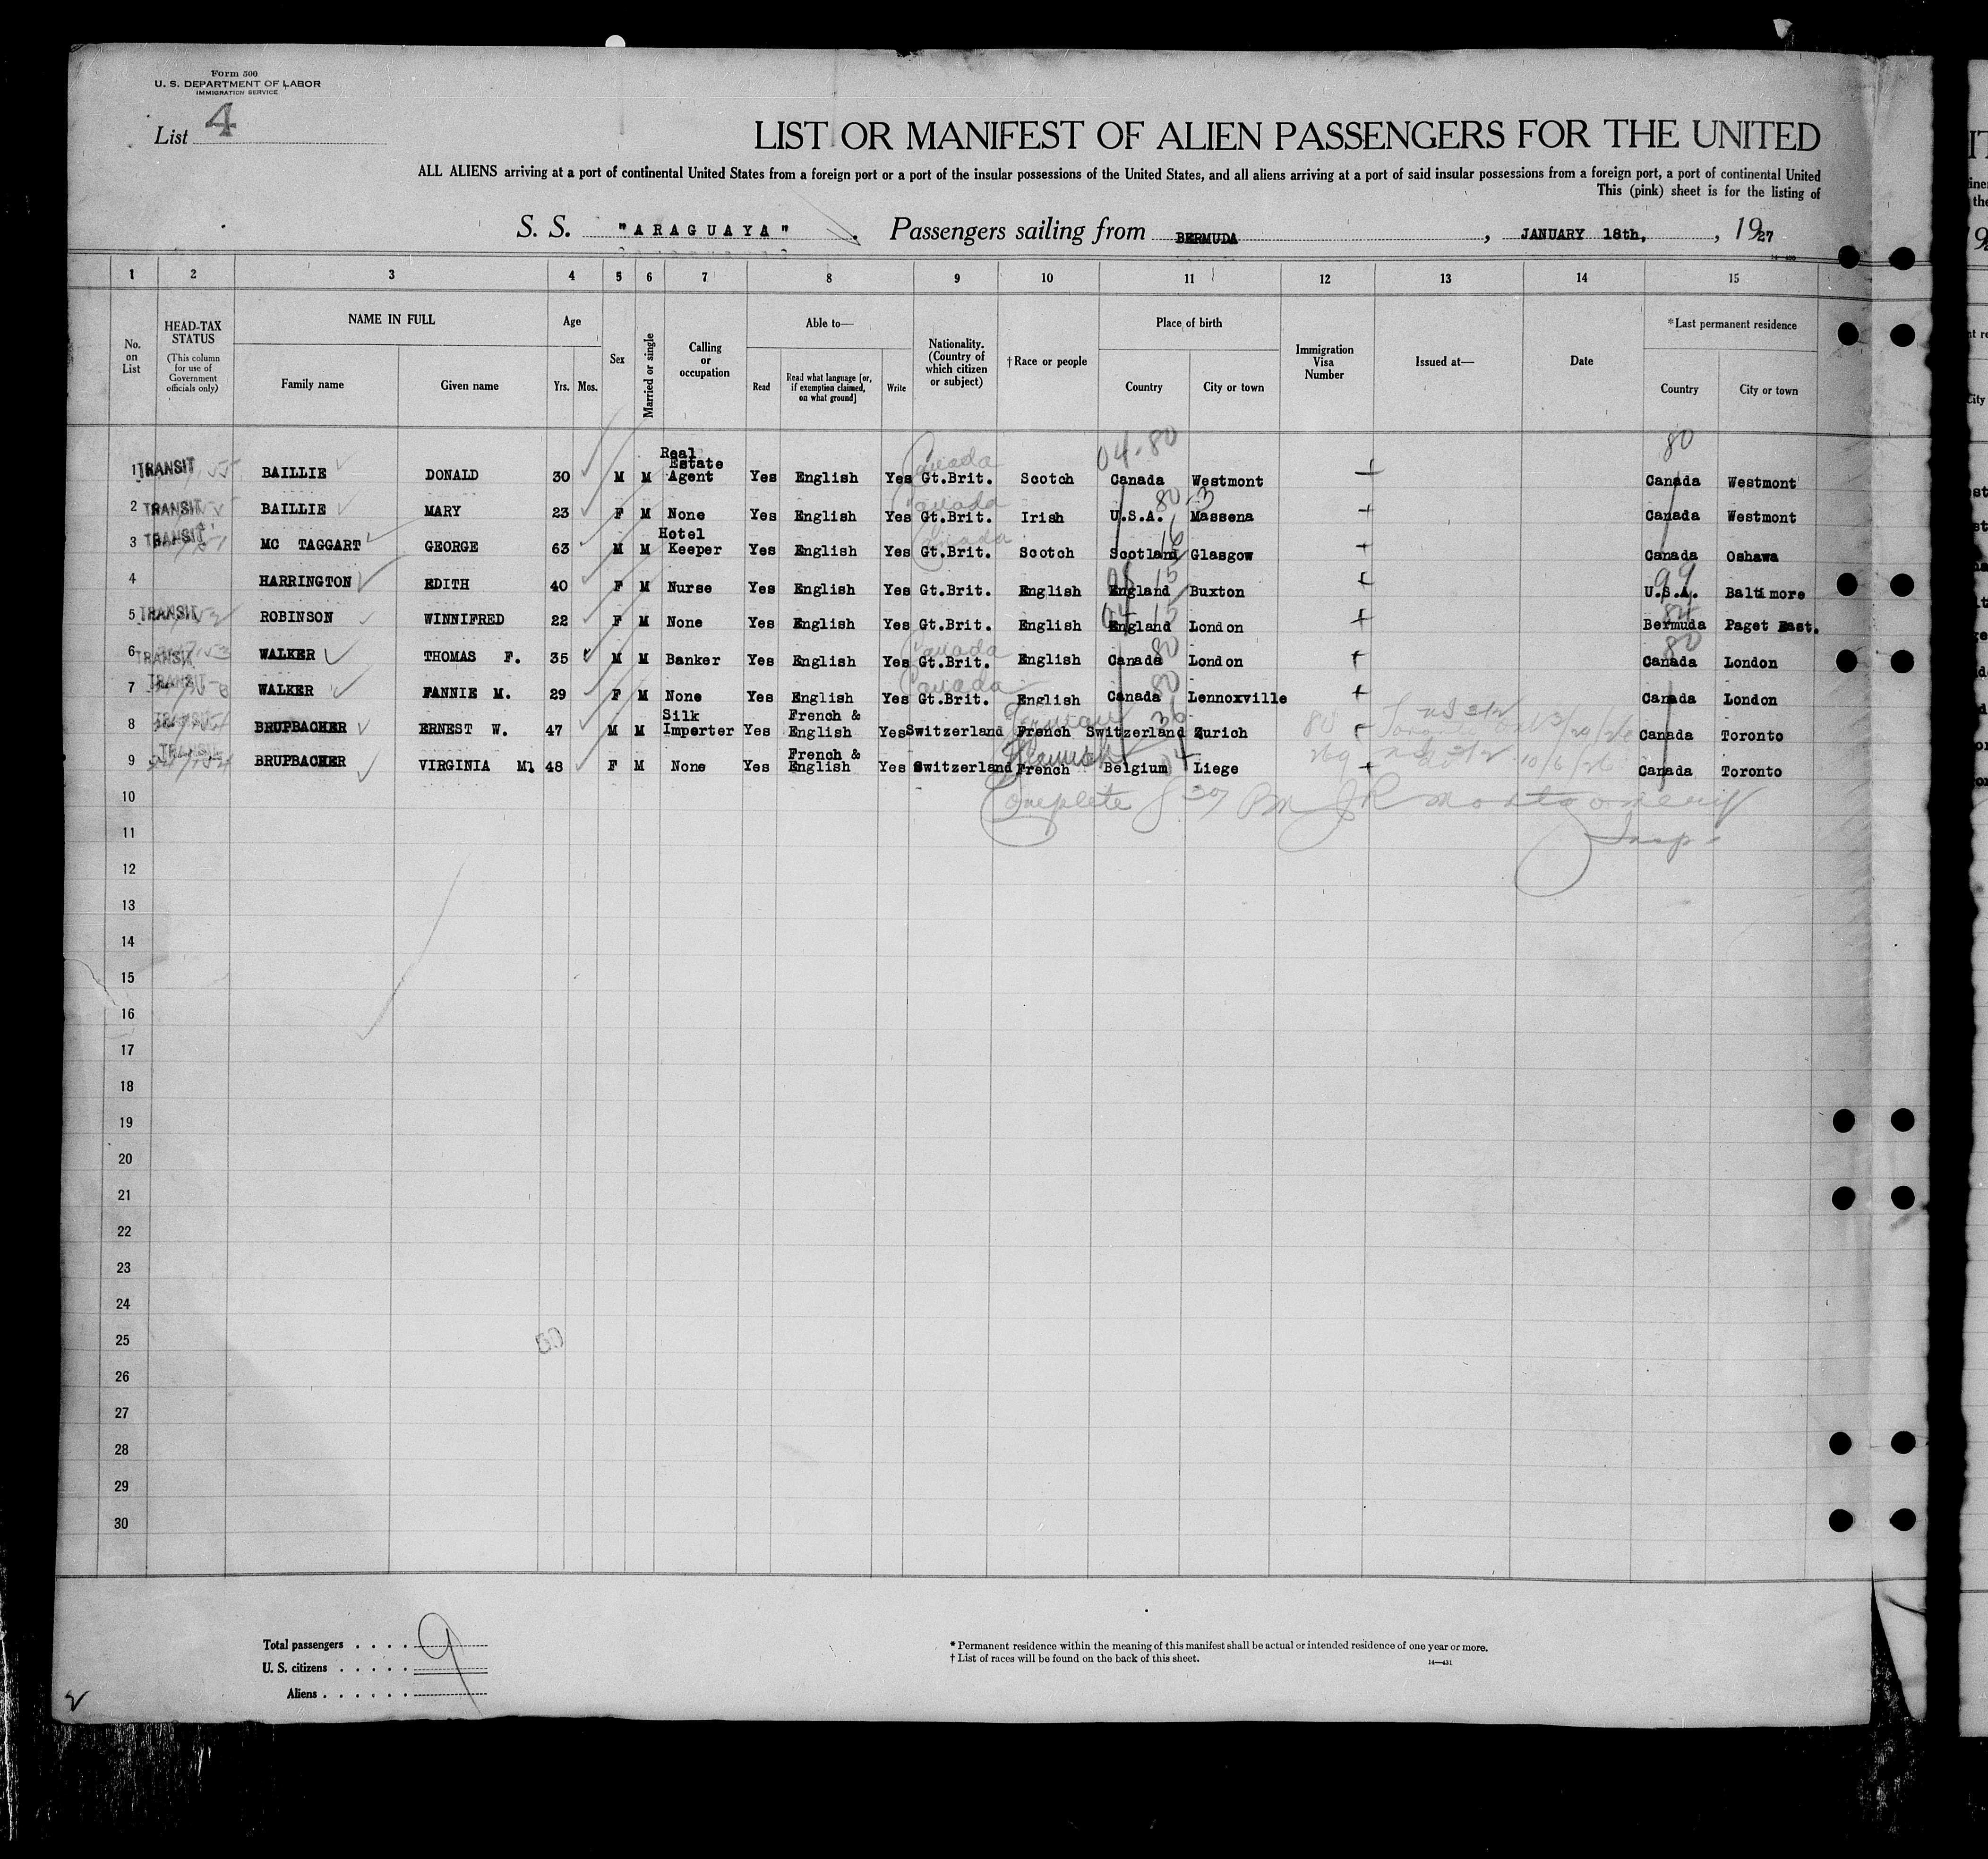 Form 500
U. S. DEPARTMENT OF LABOR
IMMIGRATION SERVICE
List 4
LIST OR MANIFEST OF ALIEN PASSENGERS FOR THE UNITED
ALL ALIENS arriving at a port of continental United States from a foreign port or a port of the insular possessions of the United States, and all aliens arriving at a port of said insular possessions from a foreign port, a port of continental United
This (pink) sheet is for the listing of
S. S. "ARAGUAYA" Passengers sailing from BERMUDA, JANUARY 18th, , 1927
1 2 3 4 5 6 7 8 9 10 11 12 13 14 15
No. on List
HEAD-TAX STATUS (This column for use of Government officials only)
NAME IN FULL
Family name Given name
Age
Yrs. Mos.
Sex
Married or single
Calling or occupation
Able to—
Read Read what language [or, if exemption claimed, on what ground] Write
Nationality. (Country of which citizen or subject)
†Race or people
Place of birth
Country City or town
Immigration Visa Number
Issued at—
Date
*Last permanent residence
Country City or town
04-80 80
1 TRANSIT BAILLIE DONALD 30 M M Real Estate Agent Yes English Yes Canada Gt.Brit. Scotch Canada Westmont Canada Westmont
2 TRANSIT BAILLIE MARY 23 F M None Yes English Yes Canada Gt.Brit. Irish U.S.A. 80-3 Massena Canada Westmont
3 TRANSIT MC TAGGART GEORGE 63 M M Hotel Keeper Yes English Yes Canada Gt.Brit. Scotch Scotland 16 Glasgow Canada Oshawa
4 HARRINGTON EDITH 40 F M Nurse Yes English Yes Gt.Brit. English England 15 Buxton U.S.A. 99 Baltimore
5 TRANSIT ROBINSON WINNIFRED 22 F M None Yes English Yes Gt.Brit. English 04 15 England London Bermuda Paget East.
6 TRANSIT WALKER THOMAS F. 35 M M Banker Yes English Yes Canada Gt.Brit. English Canada 80 London 80 Canada London
7 TRANSIT WALKER FANNIE M. 29 F M None Yes English Yes Canada Gt.Brit. English Canada 80 Lennoxville Canada London
8 TRANSIT BRUPBACHER ERNEST W. 47 M M Silk Importer Yes French & English Yes Switzerland French Switzerland 36 Zurich 80 Canada Toronto
9 TRANSIT BRUPBACHER VIRGINIA M. 48 F M None Yes French & English Yes Switzerland Flemish French Belgium Liege 10/6/26 Canada Toronto
10 Complete 8 30 PM JR Montgomery
11 Insp-
12
13
14
15
16
17
18
19
20
21
22
23
24
25
26
27
28
29
30
Total passengers . . . . 9
U. S. citizens . . . . .
Aliens . . . . . .
* Permanent residence within the meaning of this manifest shall be actual or intended residence of one year or more.
† List of races will be found on the back of this sheet.
14—431